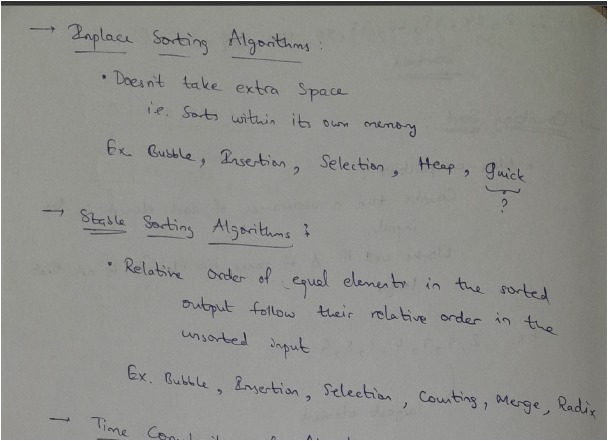 → Inplace Sorting Algorithms :
• Doesn't take extra space
i.e. Sorts within its own memory
Ex Bubble, Insertion, Selection, Heap, Quick
?
→ Stable Sorting Algorithms :
• Relative order of equal elements in the sorted
output follow their relative order in the
unsorted input
Ex. Bubble, Insertion, Selection, Counting, Merge, Radix
→ Time